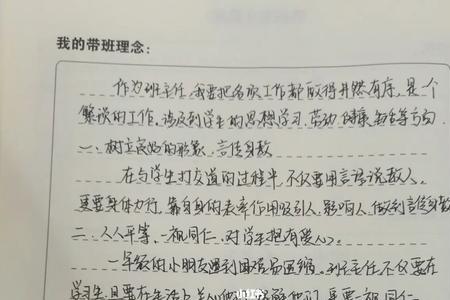 我的带班理念：
作为班主任，我要把各项工作都取得井然有序，是一个
繁琐的工作。涉及到学生的思想学习、劳动、健康、生活等方面
一、树立良好的形象，言传身教
在与学生打交道的过程中，不仅要用言语说教人。
更要身体力行，靠自身的表率作用吸引人、影响人，做到言传身教
二、人人平等，一视同仁，对学生抱有爱心。
一年级的小朋友遇到困难易退缩，班主任不仅要在
学习 且要在生活上关 他们，更要一视同仁
小红书